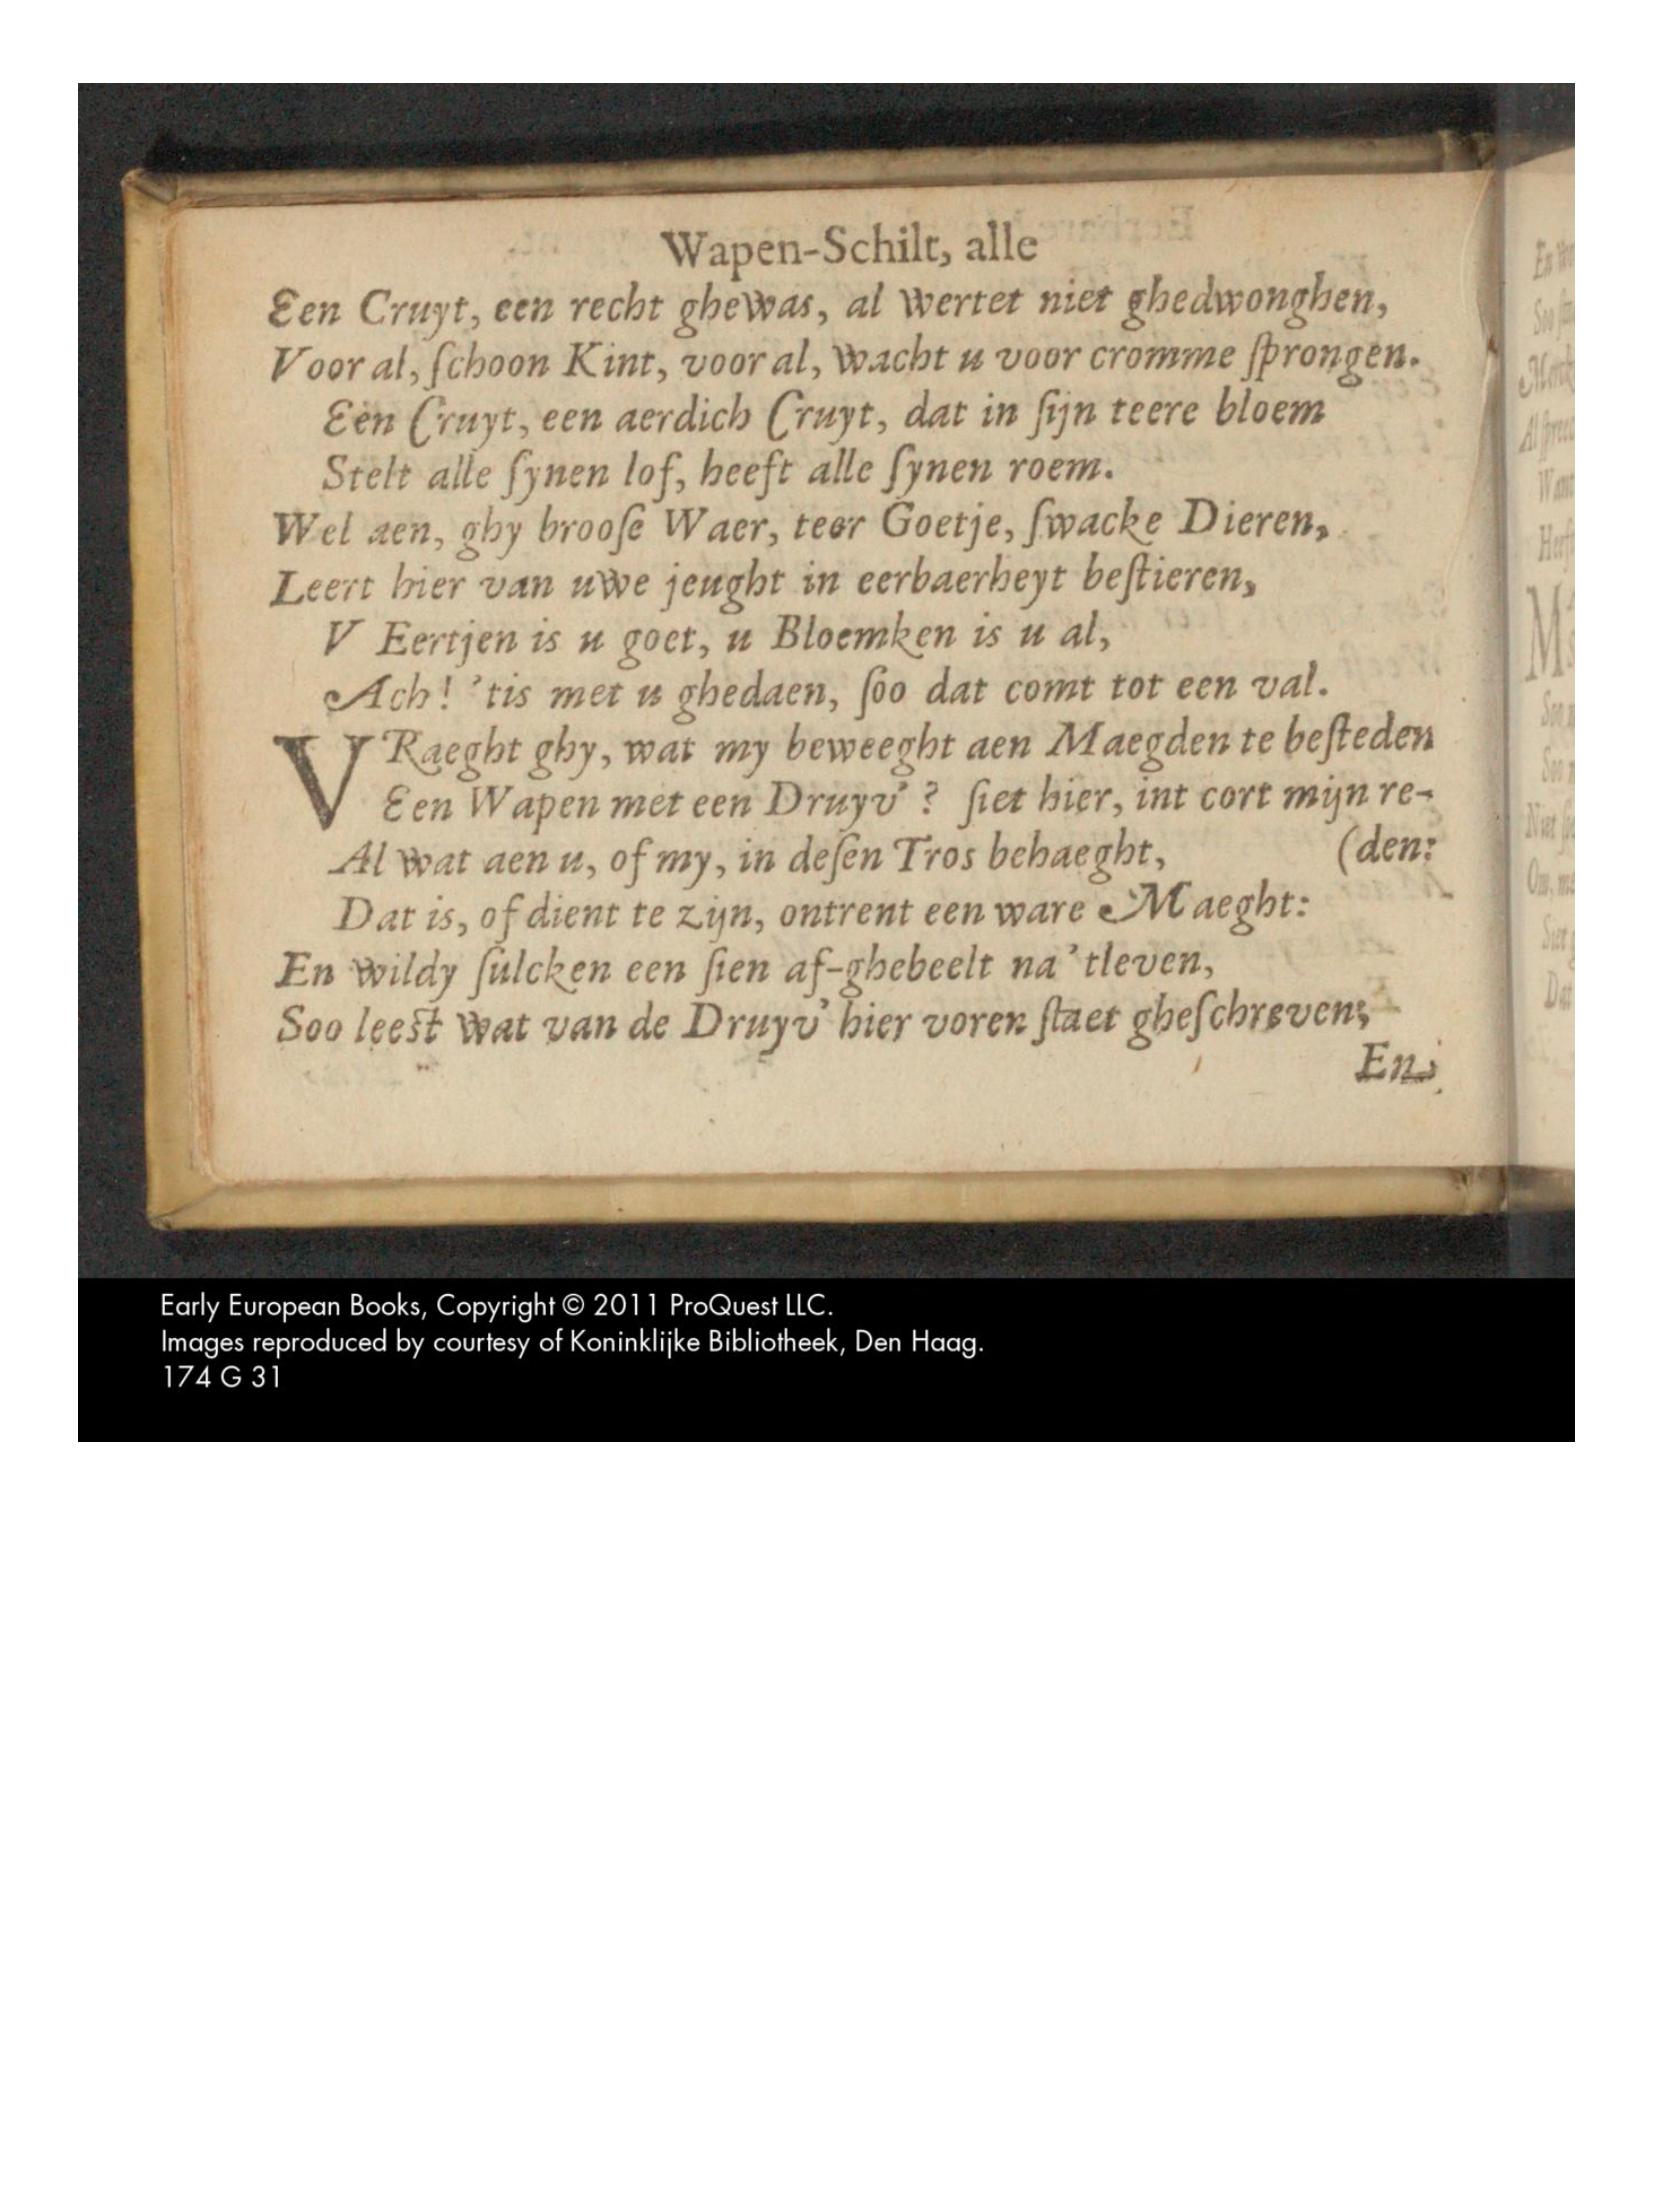 Wapen-Schilt, alle
Een Cruyt, een recht ghewas, al wertet niet ghedwonghen,
Voor al, ſchoon Kint, voor al, wacht u voor cromme ſprongen.
Een Cruyt, een aerdich Cruyt, dat in ſijn teere bloem
Stelt alle ſynen lof, heeft alle ſynen roem.
Wel aen, ghy brooſe Waer, teer Goetje, ſwacke Dieren,
Leert hier van uwe jeught in eerbaerheyt beſtieren,
V Eertjen is u goet, u Bloemken is u al,
Ach! 'tis met u ghedaen, ſoo dat comt tot een val.
VRaeght ghy, wat my beweeght aen Maegden te beſteden
Een Wapen met een Druyv'? ſiet hier, int cort mijn re-
Al wat aen u, of my, in deſen Tros behaeght, (den:
Dat is, of dient te zijn, ontrent een ware Maeght:
En wildy ſulcken een ſien af-ghebeelt na'tleven,
Soo leest wat van de Druyv' hier voren ſtaet gheſchreven;
En
Early European Books, Copyright © 2011 ProQuest LLC.
Images reproduced by courtesy of Koninklijke Bibliotheek, Den Haag.
174 G 31